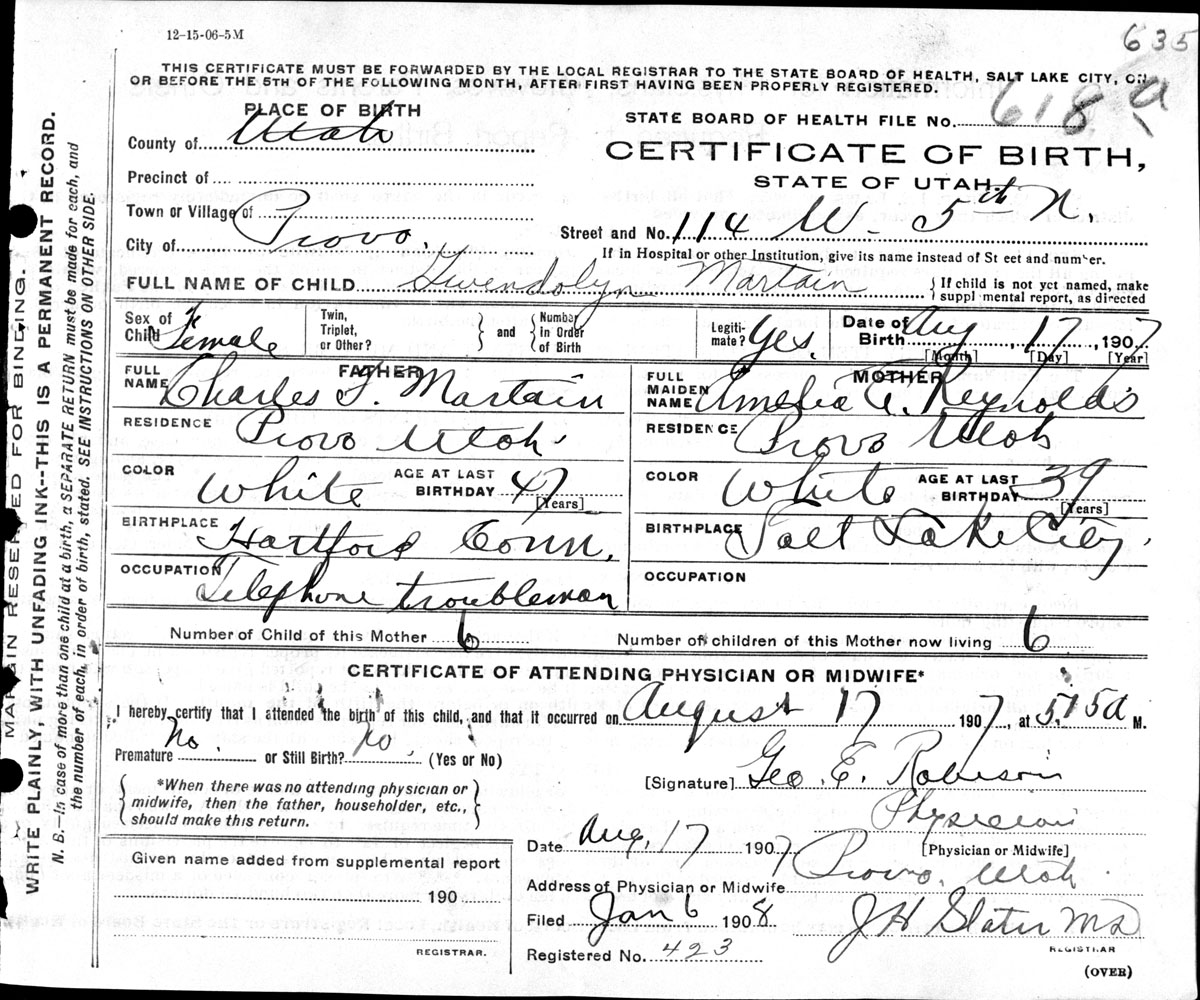 12-15-06-5M
635
THIS CERTIFICATE MUST BE FORWARDED BY THE LOCAL REGISTRAR TO THE STATE BOARD OF HEALTH, SALT LAKE CITY, ON
OR BEFORE THE 5TH OF THE FOLLOWING MONTH, AFTER FIRST HAVING BEEN PROPERLY REGISTERED.
PLACE OF BIRTH
STATE BOARD OF HEALTH FILE No. 618 a
County of Utah
CERTIFICATE OF BIRTH,
STATE OF UTAH.
Precinct of
Town or Village of
City of Provo.
Street and No. 114 W. 5th N.
If in Hospital or other Institution, give its name instead of St eet and number.
FULL NAME OF CHILD Gwendolyn Martain
If child is not yet named, make
suppl mental report, as directed
Sex of Child Female
Twin, Triplet, or Other?
and
Number in Order of Birth
Legitimate? Yes.
Date of Birth Aug, 17, 1907
[Month] [Day] [Year]
FATHER
FULL NAME Charles F. Martain
RESIDENCE Provo Utah
COLOR White
AGE AT LAST BIRTHDAY 47
[Years]
BIRTHPLACE Hartford Conn.
OCCUPATION Telephone troubleman
MOTHER
FULL MAIDEN NAME Amelia A. Reynolds
RESIDENCE Provo Utah
COLOR White
AGE AT LAST BIRTHDAY 39
[Years]
BIRTHPLACE Salt Lake City.
OCCUPATION
Number of Child of this Mother 6
Number of children of this Mother now living 6
CERTIFICATE OF ATTENDING PHYSICIAN OR MIDWIFE*
I hereby certify that I attended the birth of this child, and that it occurred on August 17 1907, at 5,15a M.
Premature No. or Still Birth? No. (Yes or No)
*When there was no attending physician or
midwife, then the father, householder, etc.,
should make this return.
[Signature] Geo. E. Robison
Physician
[Physician or Midwife]
Date Aug, 17 1907
Address of Physician or Midwife Provo, Utah.
Given name added from supplemental report
190
REGISTRAR.
Filed Jan 6 1908
J H Slater MD
REGISTRAR
Registered No. 423
(OVER)
MARGIN RESERVED FOR BINDING.
WRITE PLAINLY, WITH UNFADING INK--THIS IS A PERMANENT RECORD.
N. B.--In case of more than one child at a birth, a SEPARATE RETURN must be made for each, and
the number of each, in order of birth, stated. SEE INSTRUCTIONS ON OTHER SIDE.